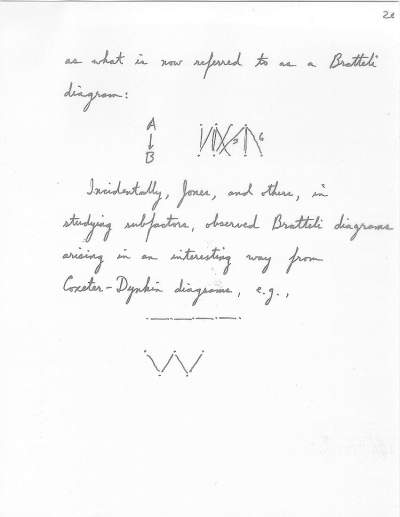 20
as what is now referred to as a Bratteli
diagram:
A
↓
B
5 6
Incidentally, Jones, and others, in
studying subfactors, observed Bratteli diagrams
arising in an interesting way from
Coxeter-Dynkin diagrams, e.g.,